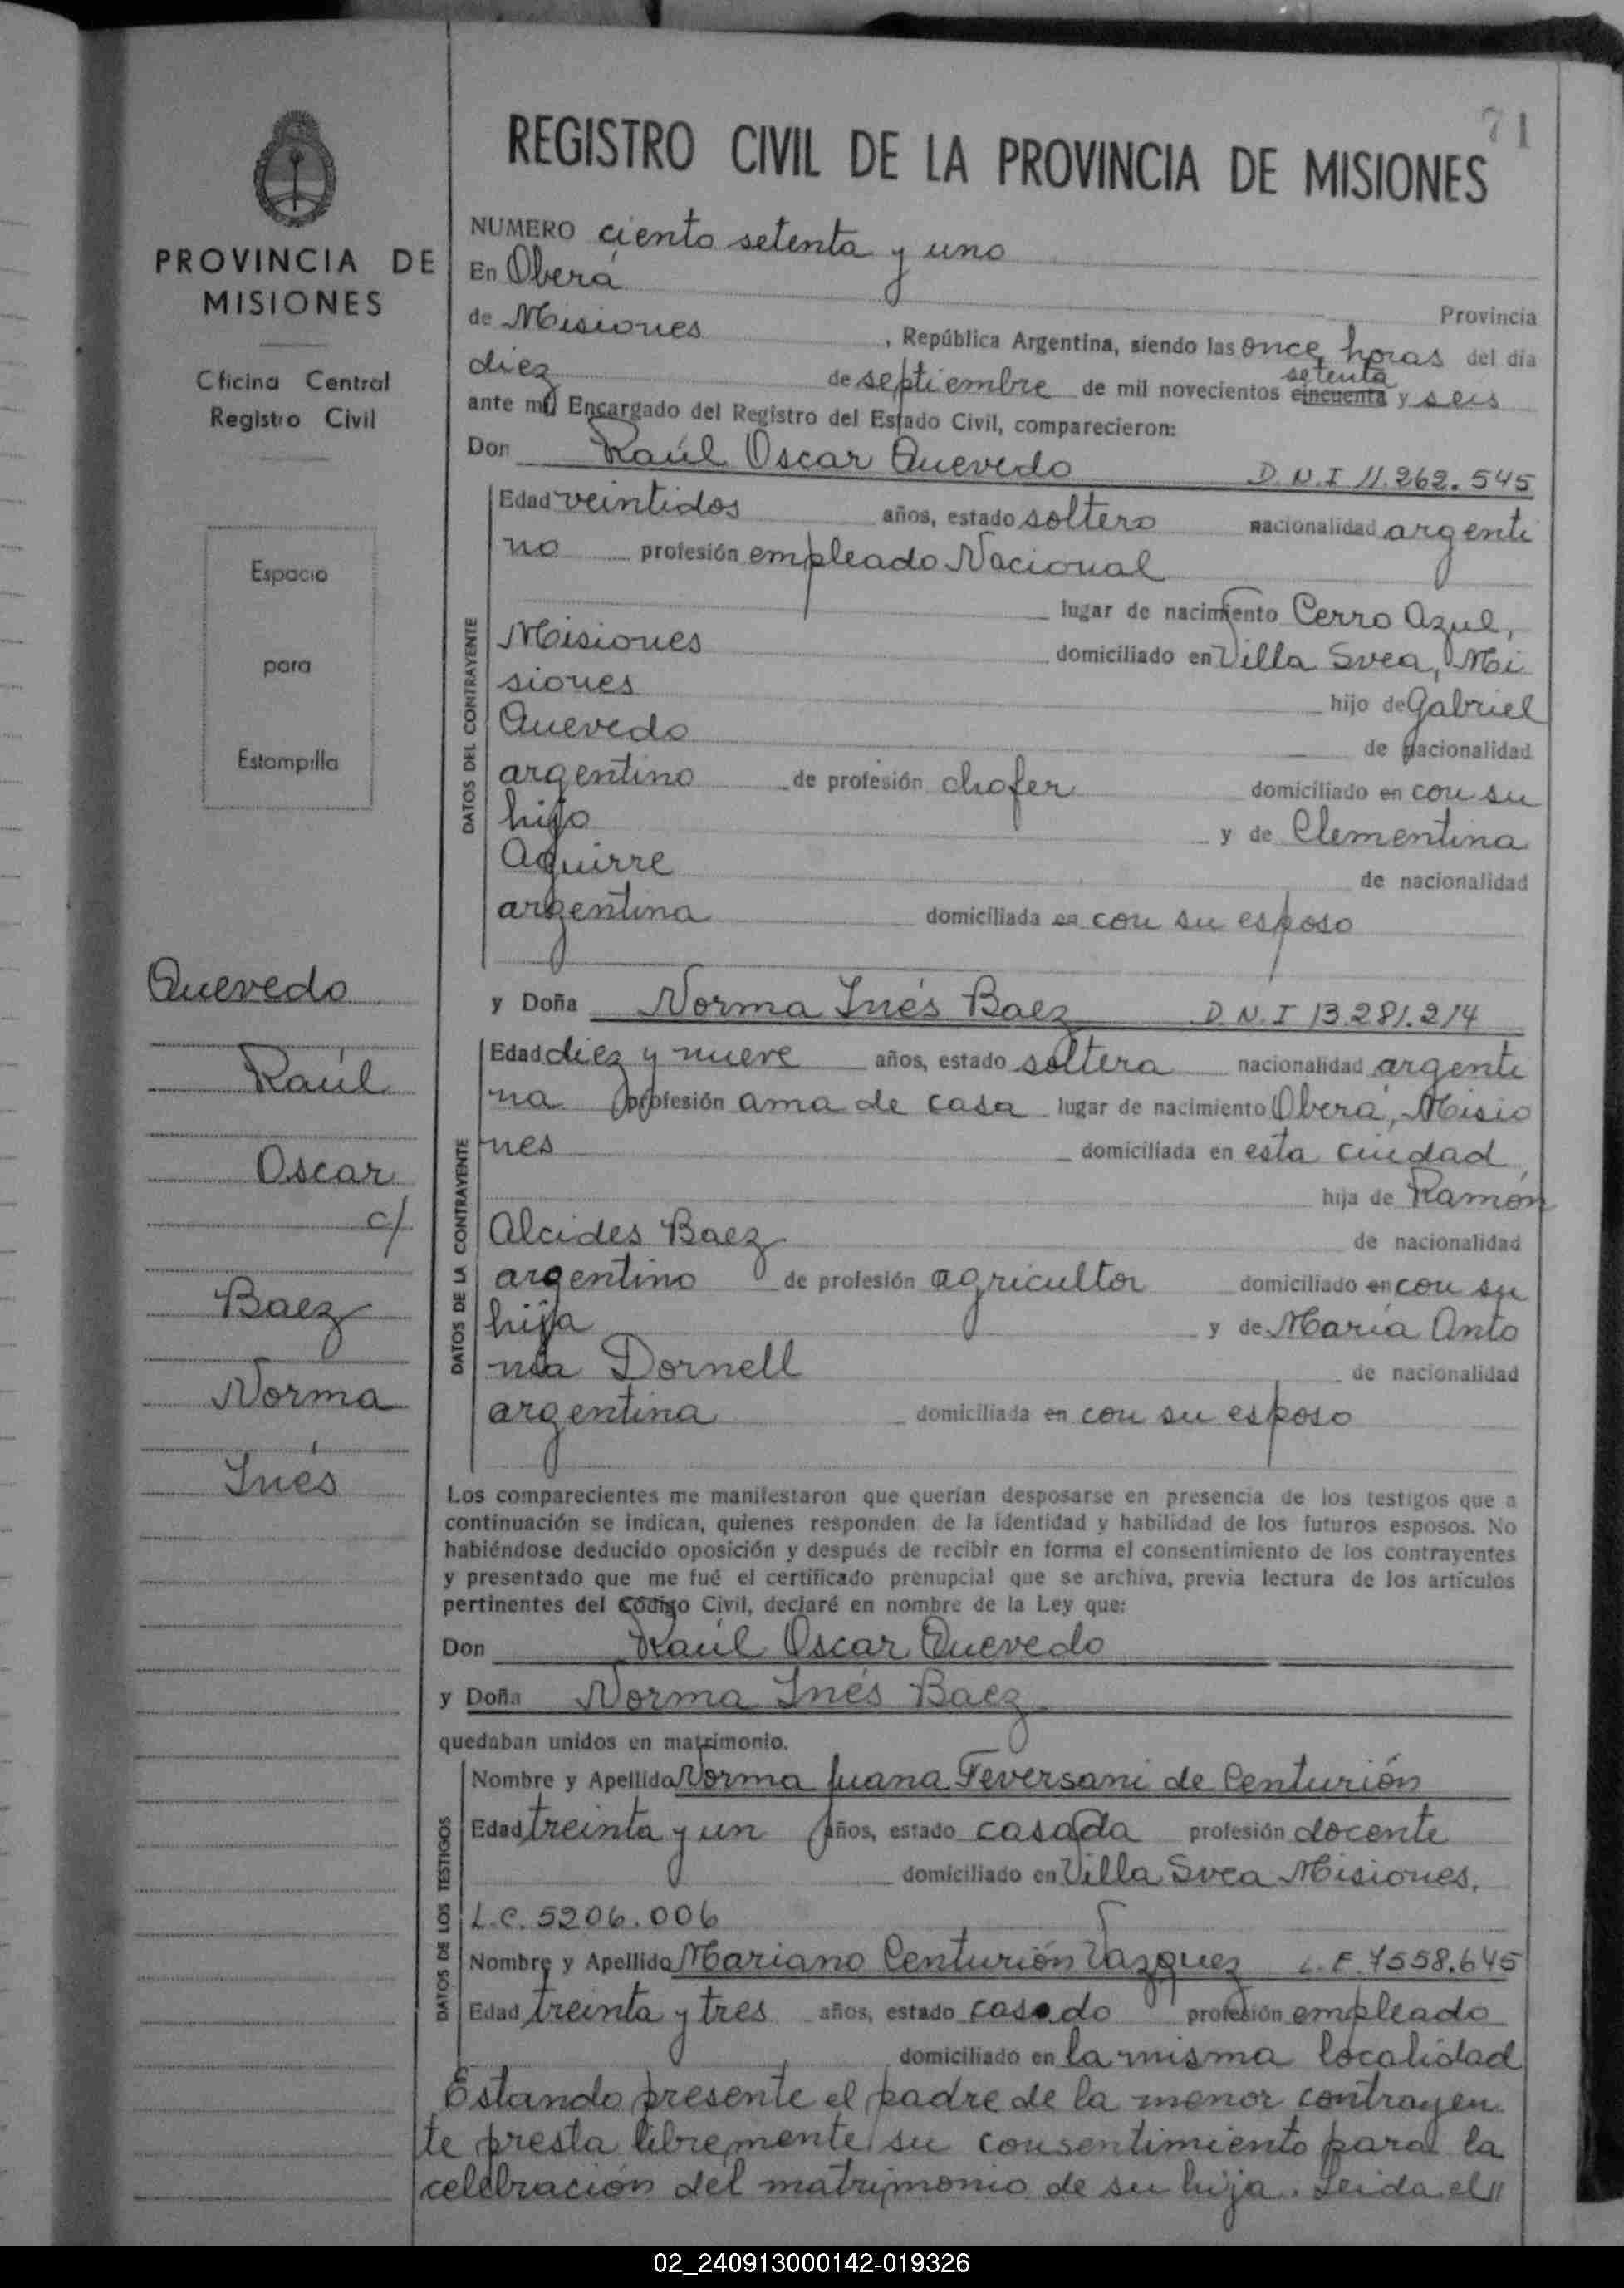 71
REGISTRO CIVIL DE LA PROVINCIA DE MISIONES
PROVINCIA DE
MISIONES
Oficina Central
Registro Civil
Espacio
para
Estampilla
Quevedo
Raúl
Oscar
c/
Baez
Norma
Inés
NUMERO ciento setenta y uno
En Oberá
Provincia
de Misiones, República Argentina, siendo las once horas del día
setenta
diez de septiembre de mil novecientos cincuenta y seis
ante mí Encargado del Registro del Estado Civil, comparecieron:
Don Raúl Oscar Quevedo D.N.I 11.262.545
DATOS DEL CONTRAYENTE
Edad veintidos años, estado soltero nacionalidad argenti
no profesión empleado Nacional
lugar de nacimiento Cerro Azul,
Misiones domiciliado en Villa Svea, Mi
siones hijo de Gabriel
Quevedo de nacionalidad
argentino de profesión chofer domiciliado en con su
hijo y de Clementina
Aguirre de nacionalidad
argentina domiciliada en con su esposo
y Doña Norma Inés Baez D.N.I 13.281.214
DATOS DE LA CONTRAYENTE
Edad diez y nueve años, estado soltera nacionalidad argenti
na profesión ama de casa lugar de nacimiento Oberá, Misio
nes domiciliada en esta ciudad
hija de Ramón
Alcides Baez de nacionalidad
argentino de profesión agricultor domiciliado en con su
hija y de María Anto
nia Dornell de nacionalidad
argentina domiciliada en con su esposo
Los comparecientes me manifestaron que querían desposarse en presencia de los testigos que a
continuación se indican, quienes responden de la identidad y habilidad de los futuros esposos. No
habiéndose deducido oposición y después de recibir en forma el consentimiento de los contrayentes
y presentado que me fué el certificado prenupcial que se archiva, previa lectura de los artículos
pertinentes del Código Civil, declaré en nombre de la Ley que:
Don Raúl Oscar Quevedo
y Doña Norma Inés Baez
quedaban unidos en matrimonio.
DATOS DE LOS TESTIGOS
Nombre y Apellido Norma Juana Feversani de Centurión
Edad treinta y un años, estado casada profesión docente
domiciliado en Villa Svea Misiones.
L.C. 5206.006
Nombre y Apellido Mariano Centurión Vazquez L.E. 7558.645
Edad treinta y tres años, estado casado profesión empleado
domiciliado en la misma localidad
Estando presente el padre de la menor contrayen
te presta libremente su consentimiento para la
celebración del matrimonio de su hija. Leida el //
02_240913000142-019326